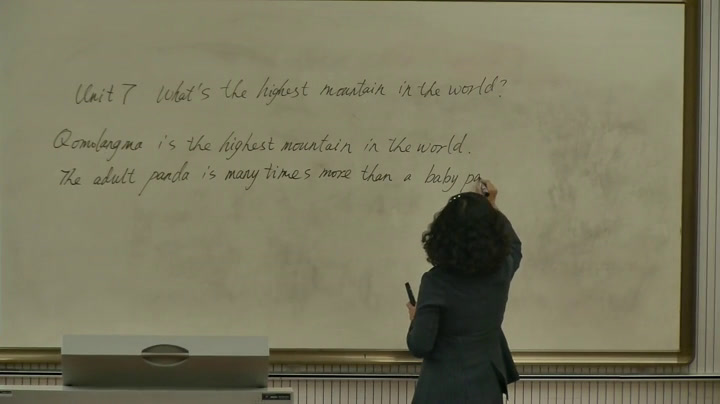 Unit 7 What's the highest mountain in the world?
Qomolangma is the highest mountain in the world.
The adult panda is many times more than a baby pa